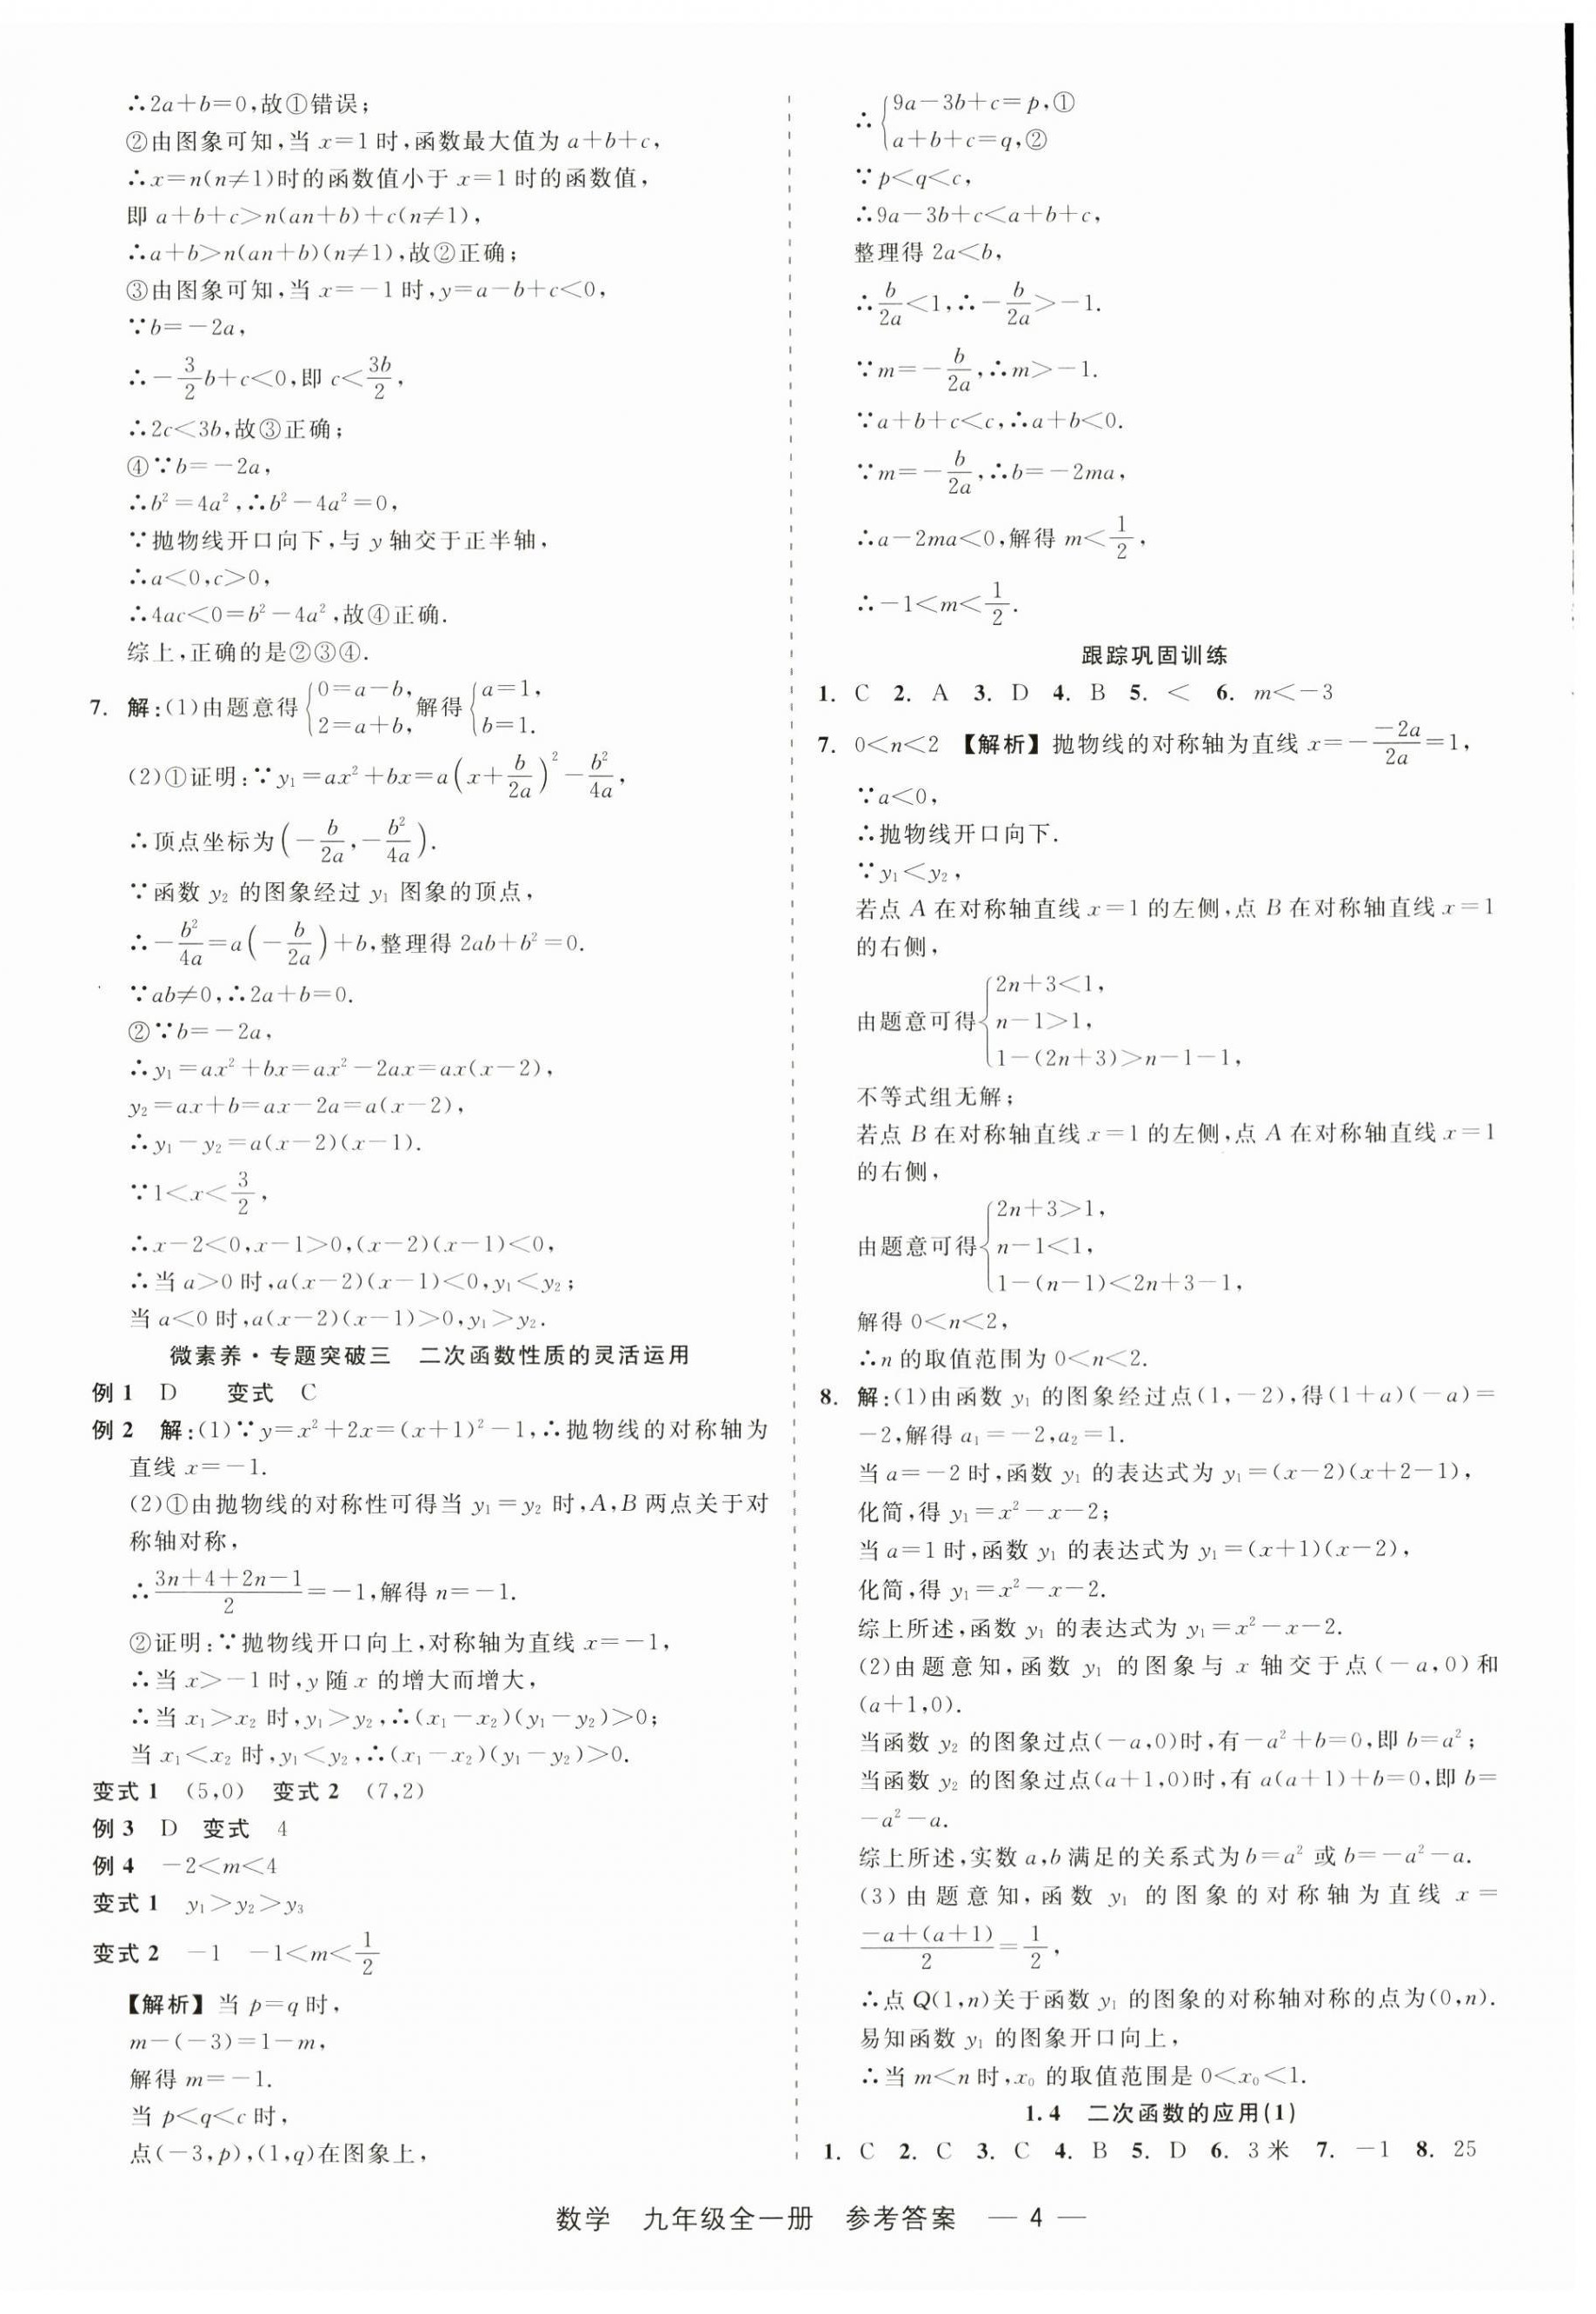 ∴2a+b=0,故①错误;
②由图象可知,当 x=1 时,函数最大值为 a+b+c,
∴x=n(n≠1)时的函数值小于 x=1 时的函数值,
即 a+b+c>n(an+b)+c(n≠1),
∴a+b>n(an+b)(n≠1),故②正确;
③由图象可知,当 x=-1 时,y=a-b+c<0,
∵b=-2a,
∴-3/2 b+c<0,即 c<3b/2,
∴2c<3b,故③正确;
④∵b=-2a,
∴b²=4a²,∴b²-4a²=0,
∵抛物线开口向下,与 y 轴交于正半轴,
∴a<0,c>0,
∴4ac<0=b²-4a²,故④正确.
综上,正确的是②③④.
7. 解:(1)由题意得{0=a-b, 2=a+b, 解得{a=1, b=1.
(2)①证明:∵y₁=ax²+bx=a(x+b/2a)²-b²/4a,
∴顶点坐标为(-b/2a,-b²/4a).
∵函数 y₂ 的图象经过 y₁ 图象的顶点,
∴-b²/4a=a(-b/2a)+b,整理得 2ab+b²=0.
∵ab≠0,∴2a+b=0.
②∵b=-2a,
∴y₁=ax²+bx=ax²-2ax=ax(x-2),
y₂=ax+b=ax-2a=a(x-2),
∴y₁-y₂=a(x-2)(x-1).
∵1<x<3/2,
∴x-2<0,x-1>0,(x-2)(x-1)<0,
∴当 a>0 时,a(x-2)(x-1)<0,y₁<y₂;
当 a<0 时,a(x-2)(x-1)>0,y₁>y₂.
微素养·专题突破三 二次函数性质的灵活运用
例 1 D 变式 C
例 2 解:(1)∵y=x²+2x=(x+1)²-1,∴抛物线的对称轴为
直线 x=-1.
(2)①由抛物线的对称性可得当 y₁=y₂ 时,A,B 两点关于对
称轴对称,
∴(3n+4+2n-1)/2=-1,解得 n=-1.
②证明:∵抛物线开口向上,对称轴为直线 x=-1,
∴当 x>-1 时,y 随 x 的增大而增大,
∴当 x₁>x₂ 时,y₁>y₂,∴(x₁-x₂)(y₁-y₂)>0;
当 x₁<x₂ 时,y₁<y₂,∴(x₁-x₂)(y₁-y₂)>0.
变式 1 (5,0) 变式 2 (7,2)
例 3 D 变式 4
例 4 -2<m<4
变式 1 y₁>y₂>y₃
变式 2 -1 -1<m<1/2
【解析】当 p=q 时,
m-(-3)=1-m,
解得 m=-1.
当 p<q<c 时,
点(-3,p),(1,q)在图象上,
∴{9a-3b+c=p,① a+b+c=q,②
∵p<q<c,
∴9a-3b+c<a+b+c,
整理得 2a<b,
∴b/2a<1,∴-b/2a>-1.
∵m=-b/2a,∴m>-1.
∵a+b+c<c,∴a+b<0.
∵m=-b/2a,∴b=-2ma,
∴a-2ma<0,解得 m<1/2,
∴-1<m<1/2.
跟踪巩固训练
1. C 2. A 3. D 4. B 5. < 6. m<-3
7. 0<n<2 【解析】抛物线的对称轴为直线 x=-(-2a)/2a=1,
∵a<0,
∴抛物线开口向下.
∵y₁<y₂,
若点 A 在对称轴直线 x=1 的左侧,点 B 在对称轴直线 x=1
的右侧,
由题意可得{2n+3<1, n-1>1, 1-(2n+3)>n-1-1,
不等式组无解;
若点 B 在对称轴直线 x=1 的左侧,点 A 在对称轴直线 x=1
的右侧,
由题意可得{2n+3>1, n-1<1, 1-(n-1)<2n+3-1,
解得 0<n<2,
∴n 的取值范围为 0<n<2.
8. 解:(1)由函数 y₁ 的图象经过点(1,-2),得(1+a)(-a)=
-2,解得 a₁=-2,a₂=1.
当 a=-2 时,函数 y₁ 的表达式为 y₁=(x-2)(x+2-1),
化简,得 y₁=x²-x-2;
当 a=1 时,函数 y₁ 的表达式为 y₁=(x+1)(x-2),
化简,得 y₁=x²-x-2.
综上所述,函数 y₁ 的表达式为 y₁=x²-x-2.
(2)由题意知,函数 y₁ 的图象与 x 轴交于点(-a,0)和
(a+1,0).
当函数 y₂ 的图象过点(-a,0)时,有-a²+b=0,即 b=a²;
当函数 y₂ 的图象过点(a+1,0)时,有 a(a+1)+b=0,即 b=
-a²-a.
综上所述,实数 a,b 满足的关系式为 b=a² 或 b=-a²-a.
(3)由题意知,函数 y₁ 的图象的对称轴为直线 x=
(-a+(a+1))/2=1/2,
∴点 Q(1,n)关于函数 y₁ 的图象的对称轴对称的点为(0,n).
易知函数 y₁ 的图象开口向上,
∴当 m<n 时,x₀ 的取值范围是 0<x₀<1.
1.4 二次函数的应用(1)
1. C 2. C 3. C 4. B 5. D 6. 3 米 7. -1 8. 25
数学 九年级全一册 参考答案 — 4 —